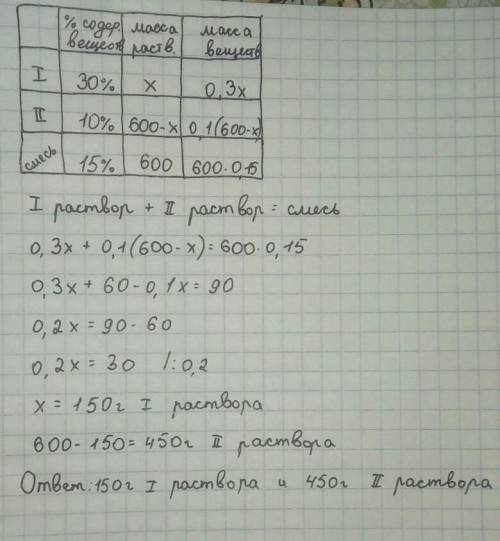 % содер. веществ масса раств. масса веществ
I 30% x 0,3x
II 10% 600-x 0,1(600-x)
смесь 15% 600 600·0,15
I раствор + II раствор = смесь
0,3x + 0,1(600-x)=600·0,15
0,3x + 60-0,1x = 90
0,2x = 90-60
0,2x = 30 /:0,2
x = 150г I раствора
600-150=450г II раствора
Ответ:150г I раствора и 450г II раствора